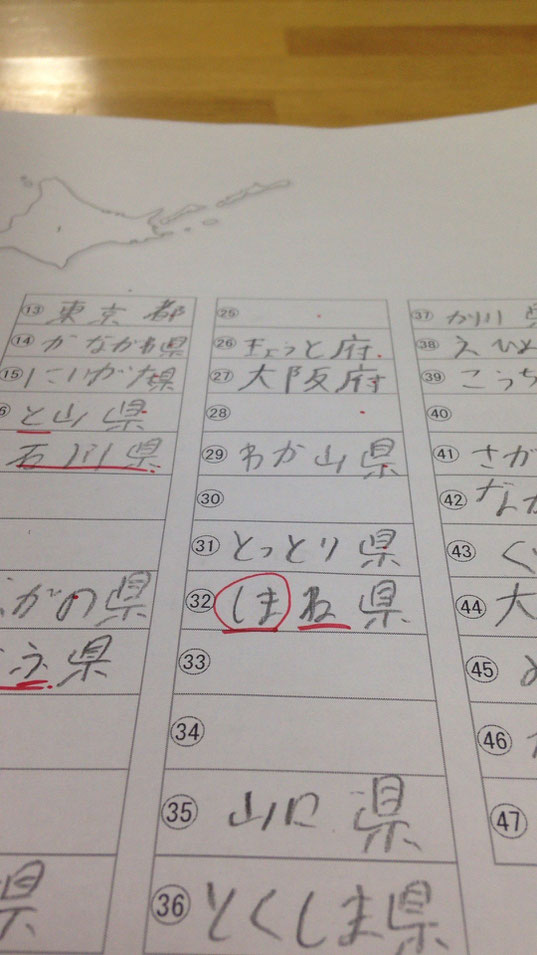 ⑬ 東京都
⑭ かながわ県
⑮ にいがた県
と山県
石川県
がの県
県
県
㉕
㉖ きょうと府
㉗ 大阪府
㉘
㉙ わか山県
㉚
㉛ とっとり県
㉜ しまね県
㉝
㉞
㉟ 山口県
㊱ とくしま県
㊲ か川
㊳ えひめ
㊴ こうち
㊵
㊶ さが
㊷
㊸ く
㊹ 大
㊺
㊻
㊼